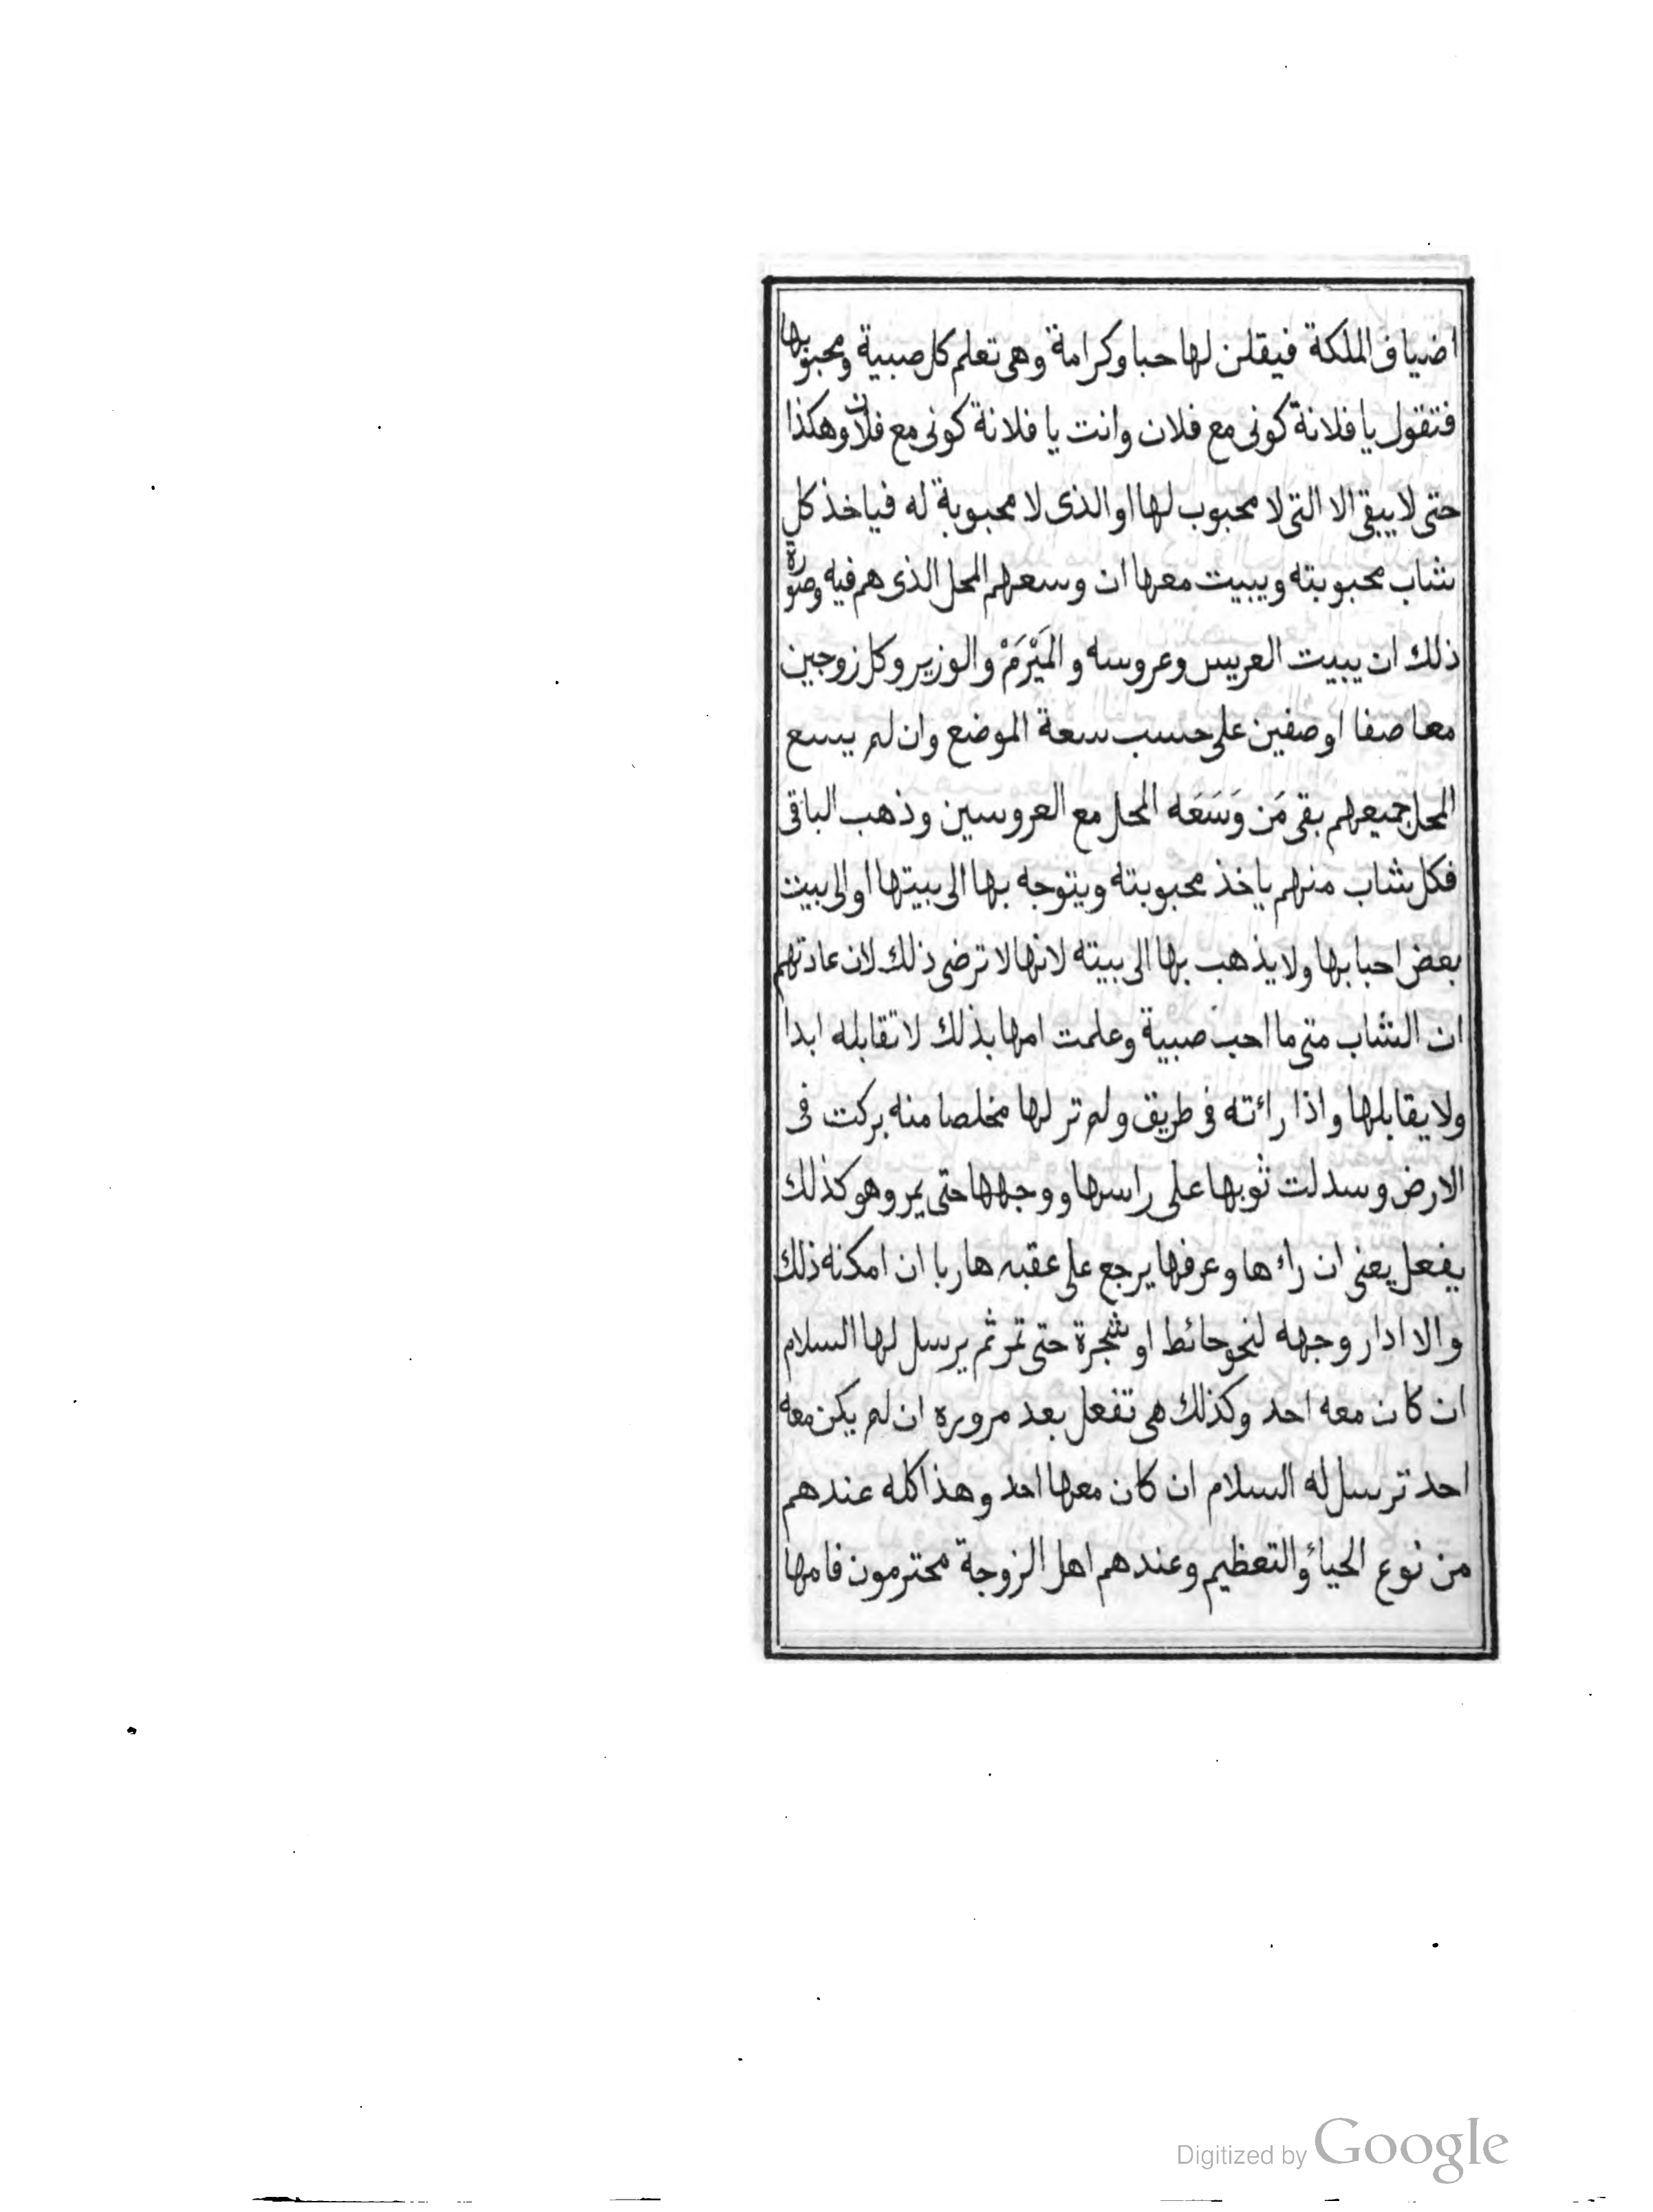 اضياف الملكة فيقلن لها حبا وكرامة وهى تعلم كل صبية ومحبوبها
فتقول يا فلانة كونى مع فلان وانت يا فلانة كونى مع فلان وهكذا
حتى لا يبقى الا التى لا محبوب لها او الذى لا محبوبة له فياخذ كل
شاب محبوبته ويبيت معها ان وسعهم المحل الذى هم فيه وصورة
ذلك ان يبيت العريس وعروسه والمَيْرَمْ والوزير وكل زوجين
معا صفا او صفين على حسب سعة الموضع وان لم يسع
المحل جميعهم بقى مَن وَسَعَه المحل مع العروسين وذهب الباقى
فكل شاب منهم ياخذ محبوبته ويتوجه بها الى بيتها او الى بيت
بعض احبابها ولا يذهب بها الى بيته لانها لا ترضى ذلك لان عادتهم
ان الشاب متى ما احب صبية وعلمت امها بذلك لا تقابله ابدا
ولا يقابلها واذا رائته فى طريق ولم تر لها مخلصا منه بركت فى
الارض وسدلت ثوبها على راسها ووجهها حتى يمر وهو كذلك
يفعل يعنى ان راءها وعرفها يرجع على عقبه هاربا ان امكنه ذلك
والا ادار وجهه لنحو حائط او شجرة حتى تمر ثم يرسل لها السلام
ان كان معه احد وكذلك هى تفعل بعد مروره ان لم يكن معه
احد ترسل له السلام ان كان معها احد وهذا كله عندهم
من نوع الحياءٔ والتعظيم وعندهم اهل الزوجة محترمون فامها
Digitized by Google